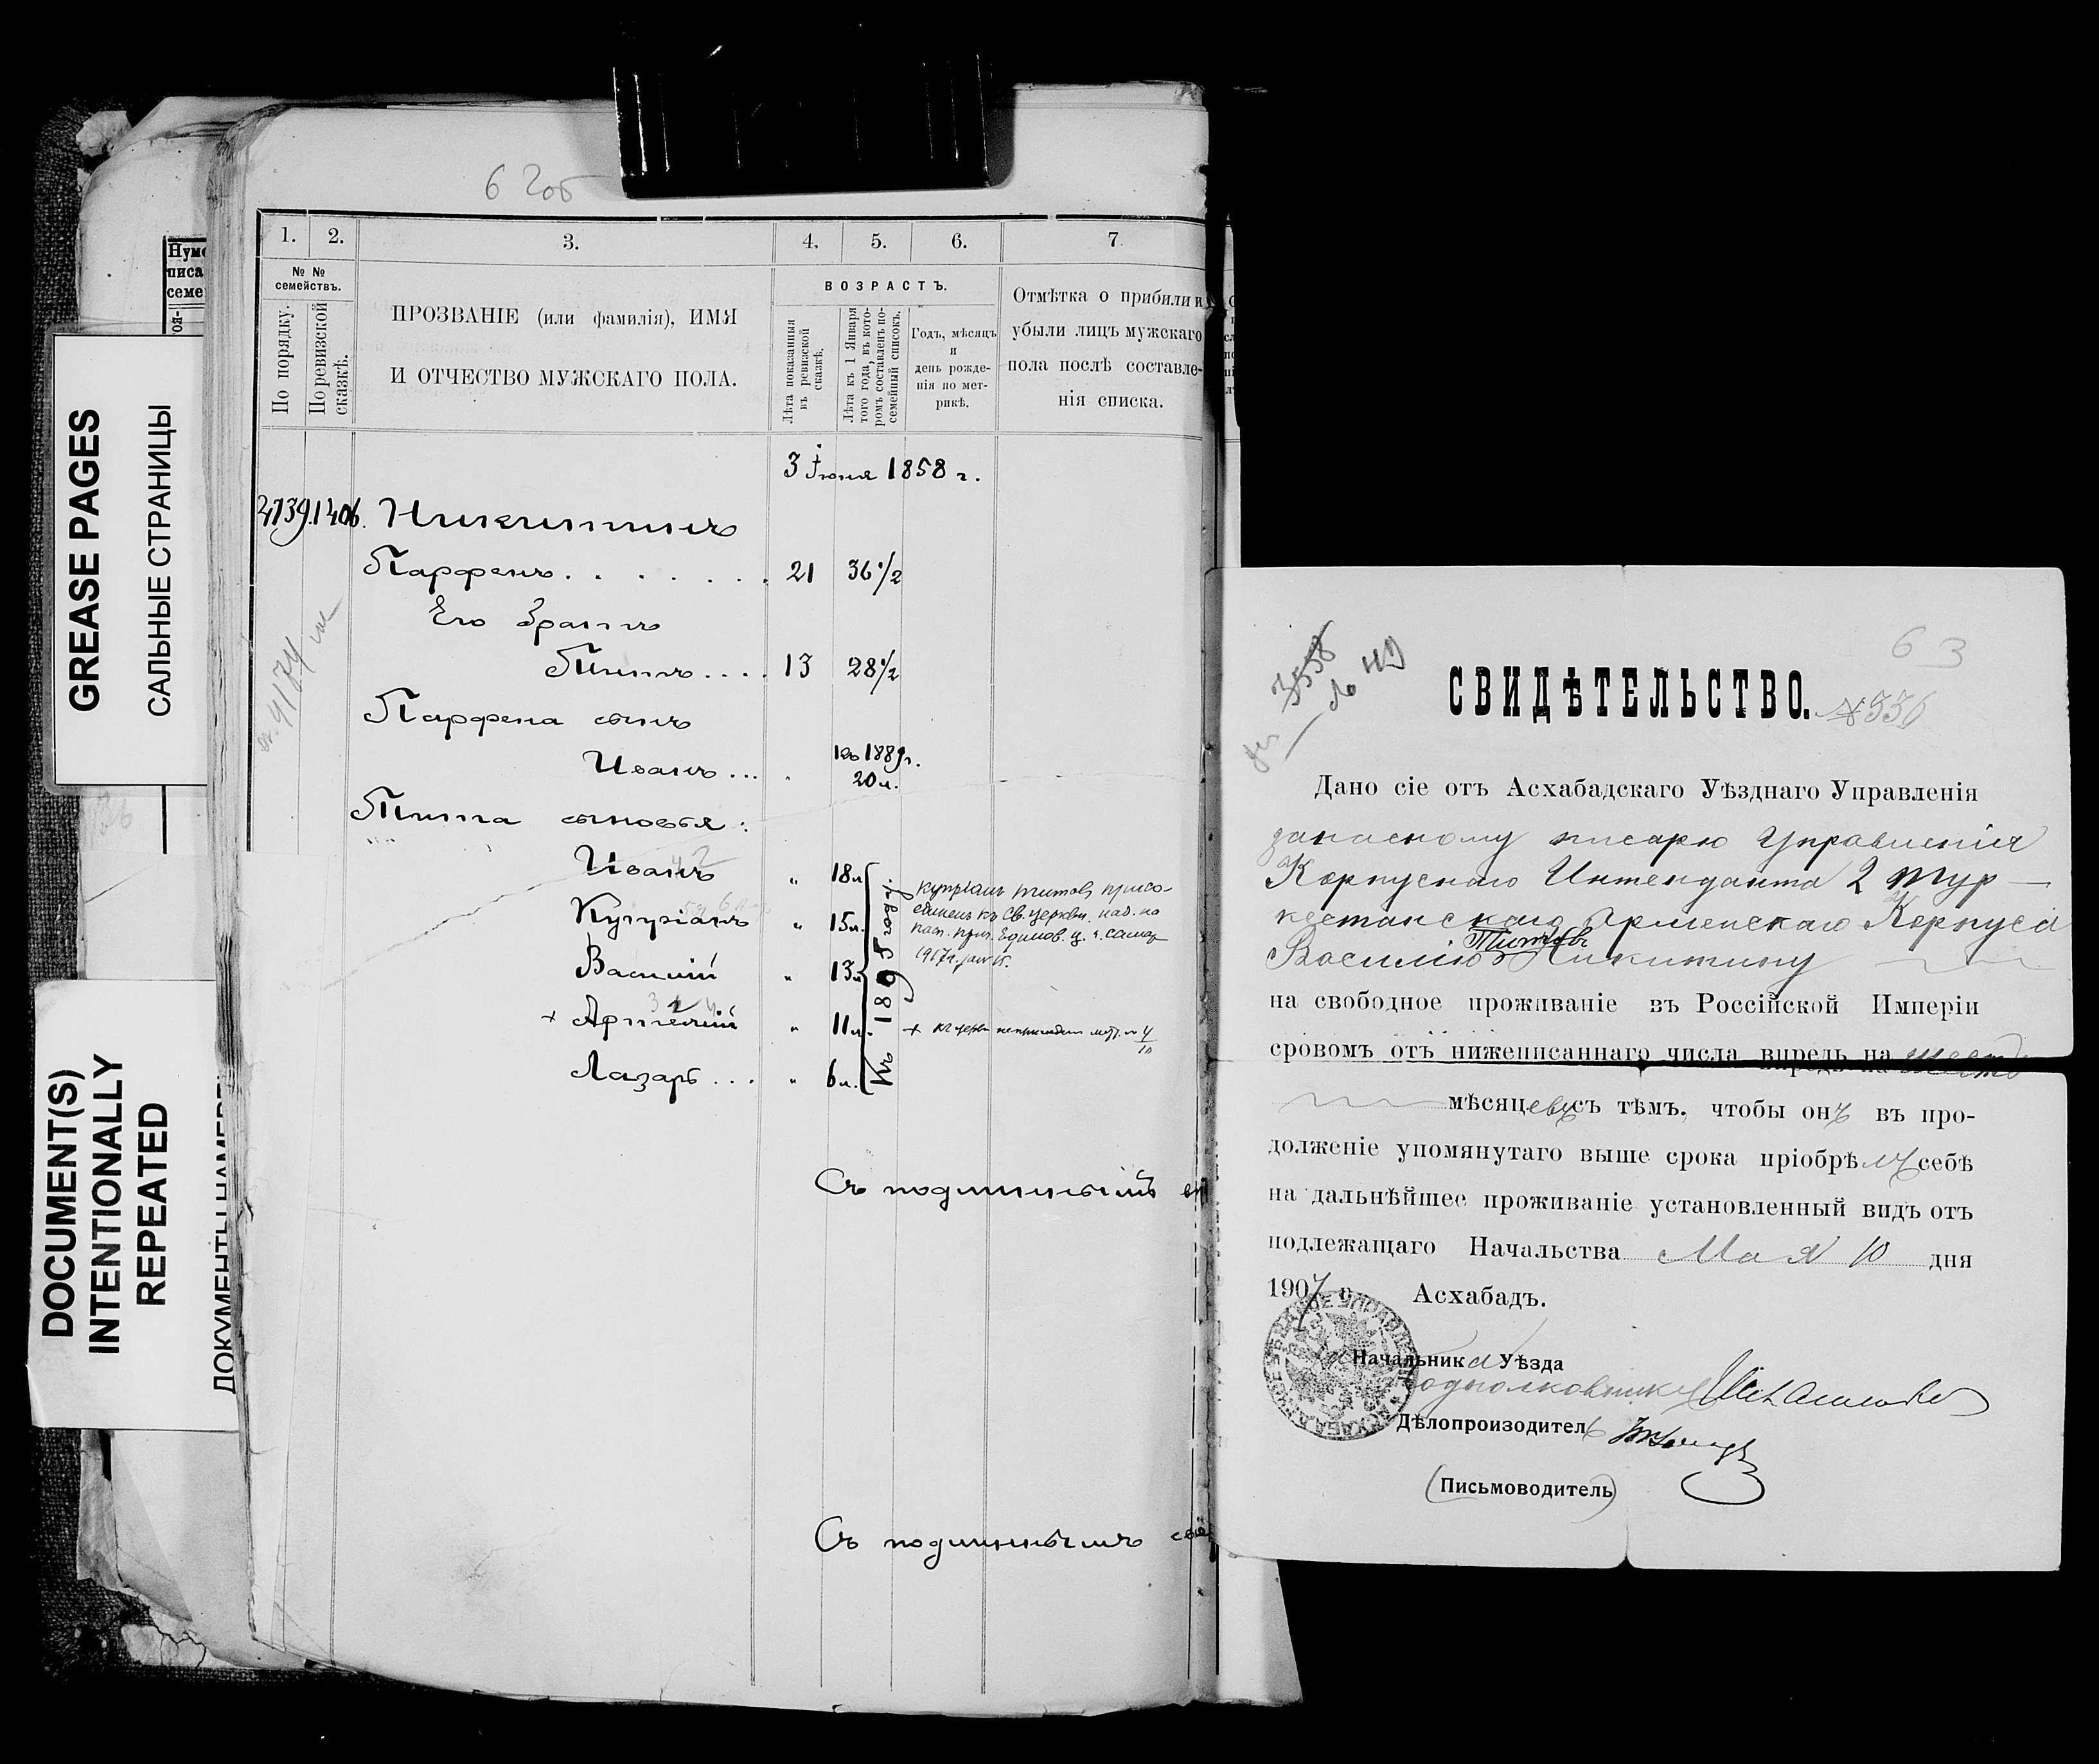 GREASE PAGES
САЛЬНЫЕ СТРАНИЦЫ
DOCUMENT(S)
INTENTIONALLY
REPEATED
Нуме
писа
семе
6 2об
1. 2. 3. 4. 5. 6. 7
№ №
семействъ.
По порядку.
По ревизской
сказкѣ.
ПРОЗВАНІЕ (или фамилія), ИМЯ
И ОТЧЕСТВО МУЖСКАГО ПОЛА.
ВОЗРАСТЪ.
Лѣта показанныя
въ ревизской
сказкѣ.
Лѣта къ 1 Января
того года, въ кото-
ромъ составленъ по-
семейный списокъ.
Годъ, мѣсяцъ
и
день рожде-
нія по мет-
рикѣ.
Отмѣтка о прибыли и
убыли лицъ мужскаго
пола послѣ составле-
нія списка.
3 Іюня 1858 г.
1406. Никитинъ
Парфенъ 21 36 1/2
Его братъ
Титъ 13 28 1/2
Парфена сынъ
Иванъ ... " Къ 1889г.
20 л.
Тита сыновья:
Иванъ " 18 л
Купріанъ " 15 л.
Василій " 13 л
+ Артемій " 11 л.
Лазарь ... " 6 л.
Къ 1895 году.
Купріанъ Титовъ присо-
единенъ къ св. церкви
Съ подлиннымъ
Съ подлиннымъ
3558
63
СВИДѢТЕЛЬСТВО. № 336
Дано сіе отъ Асхабадскаго Уѣзднаго Управленія
запасному писарю Управленія
Корпуснаго Интенданта 2 Тур-
кестанскаго Армейскаго Корпуса
Титовъ
Василію Никитину
на свободное проживаніе въ Россійской Имперіи
срокомъ отъ нижеписаннаго числа впредь на шесть
мѣсяцевъ съ тѣмъ, чтобы онъ въ про-
долженіе упомянутаго выше срока пріобрѣлъ себѣ
на дальнѣйшее проживаніе установленный видъ отъ
подлежащаго Начальства Мая 10 дня
1907 г. Асхабадъ.
Начальника Уѣзда
Подполковникъ
Дѣлопроизводитель
(Письмоводитель)